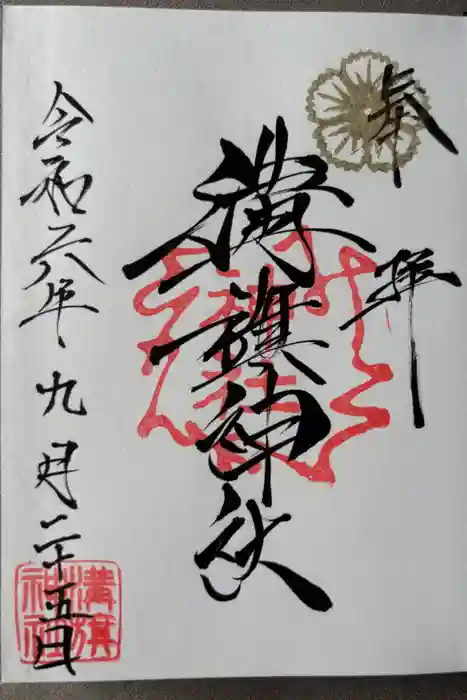 奉拝
溝旗神社
令和六年九月二十五日
溝旗
神社